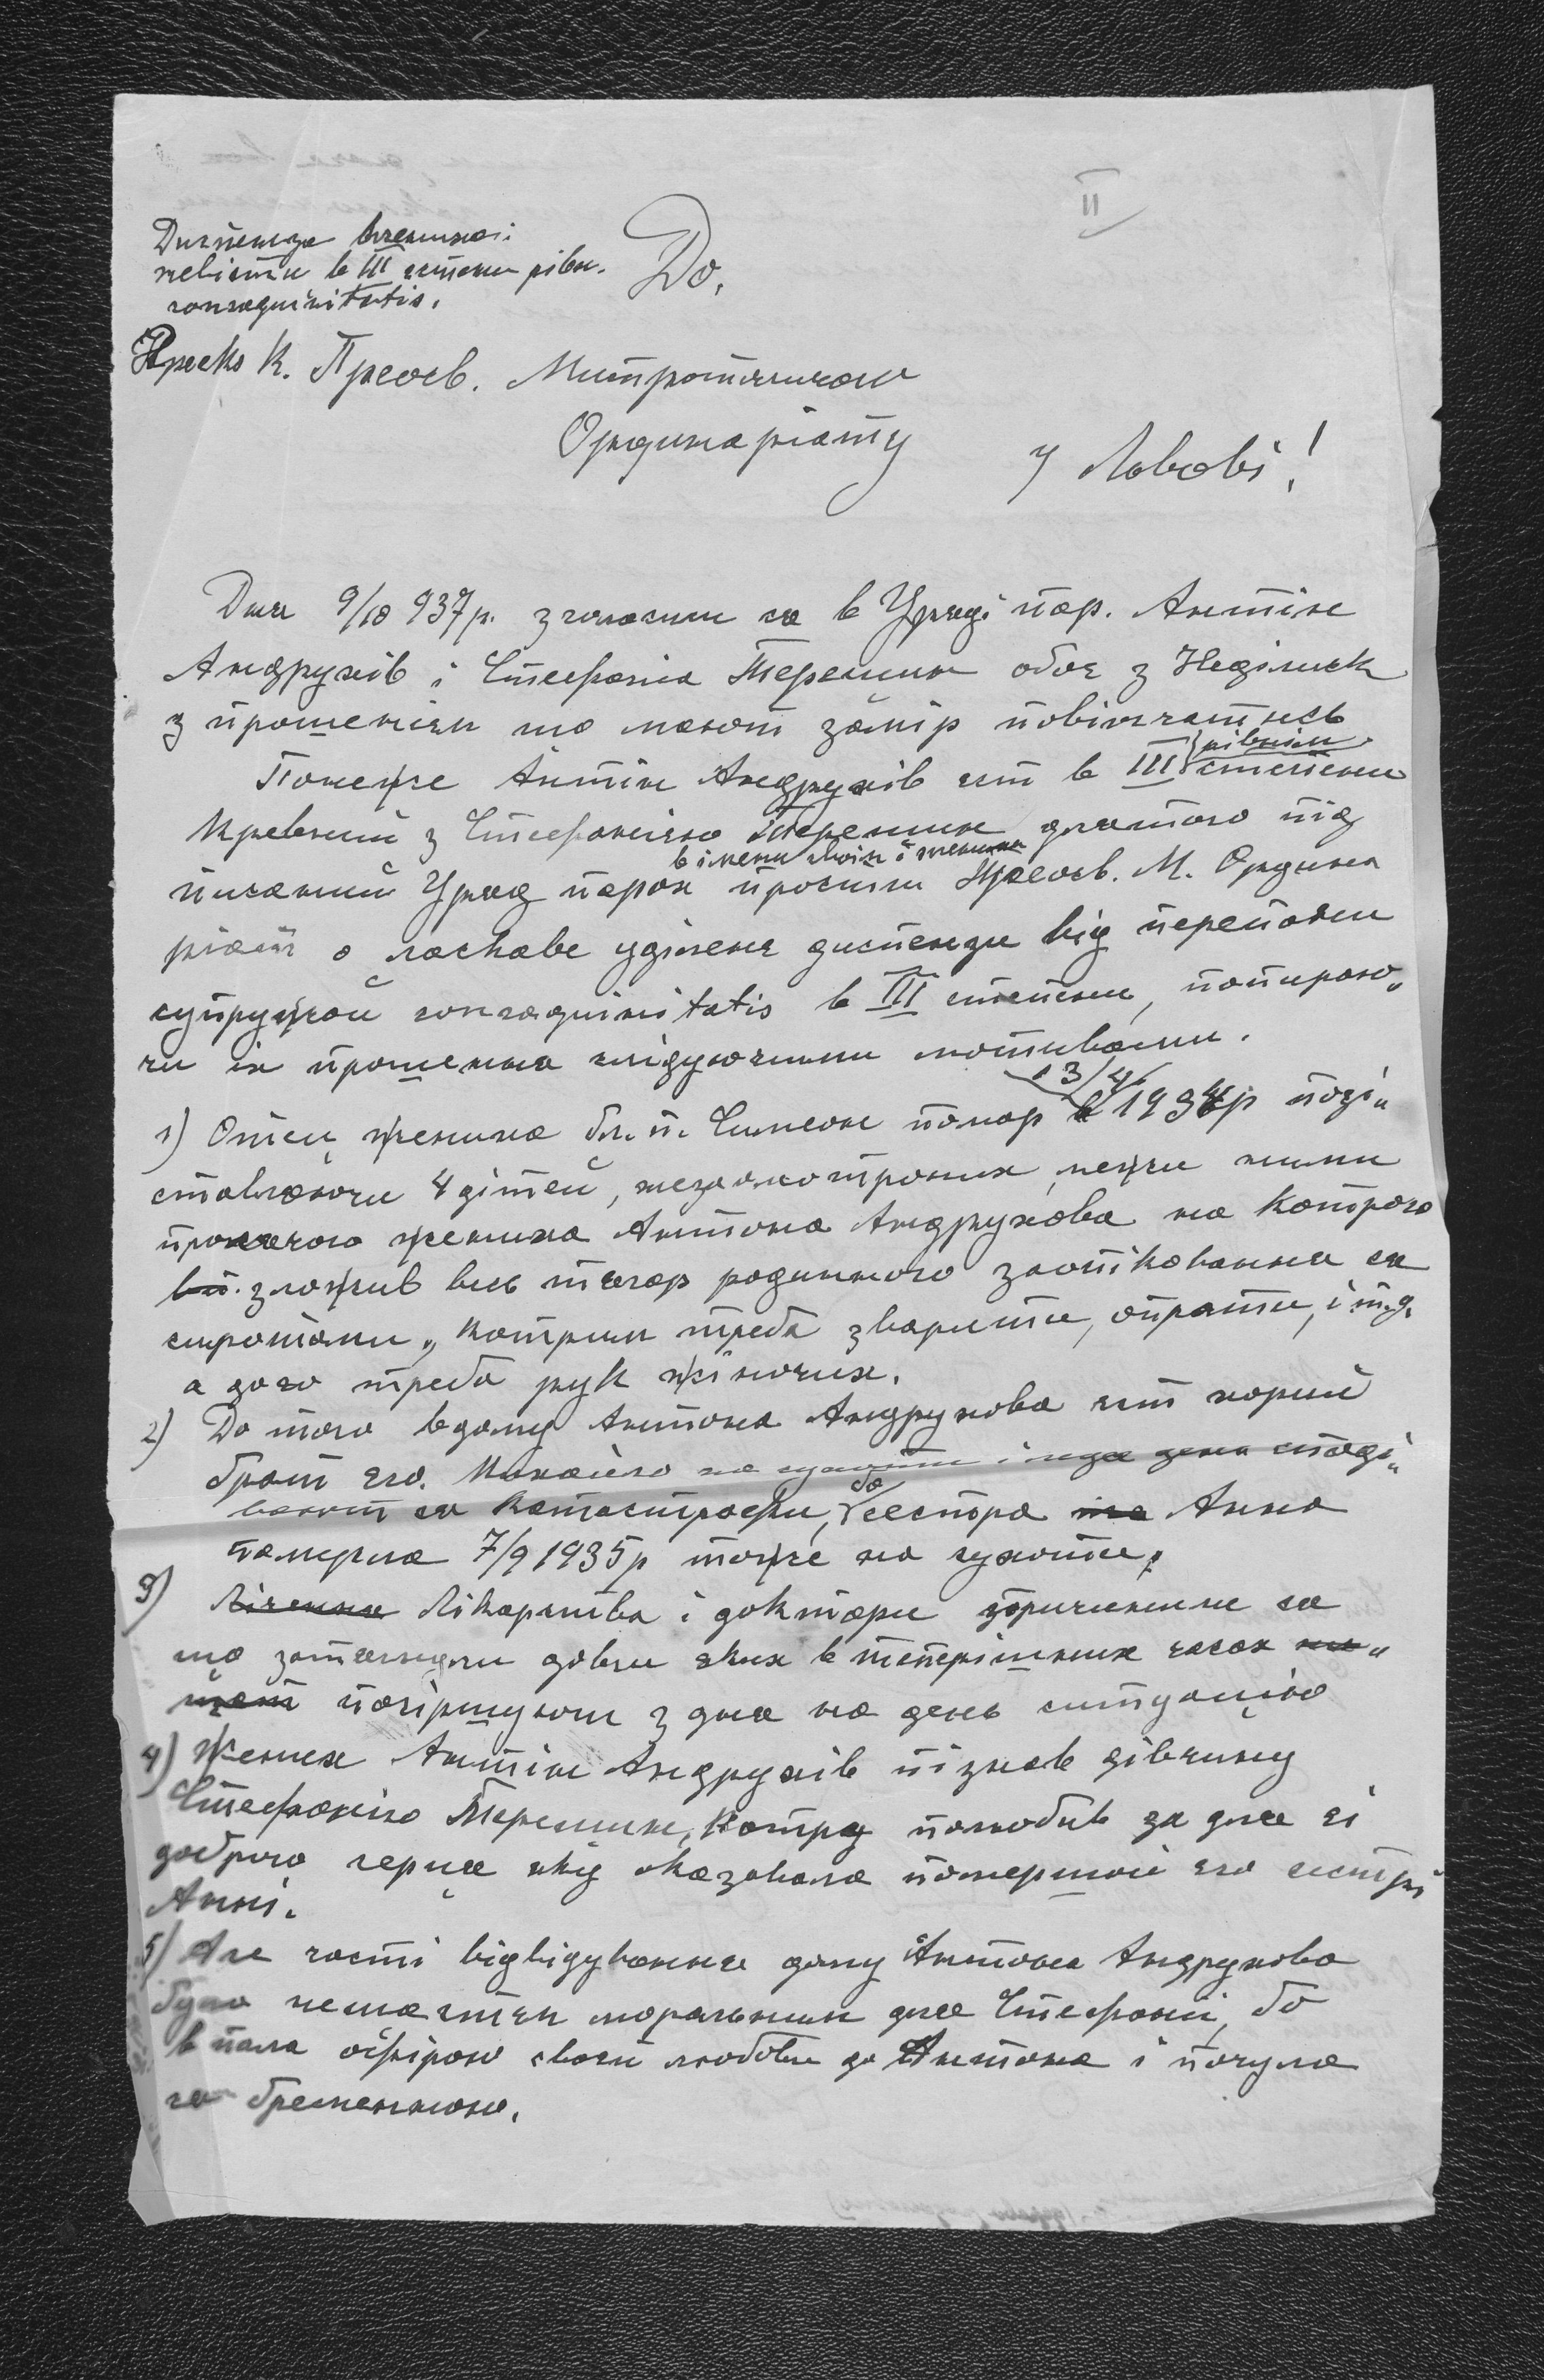 II
Диспенза вінчальної
невісти в III степени рівн.
consaguinitatis.
До,
Преск К. Преосв. Митрополичого
Ординаріяту
у Львові!
Дня 9/10 937р. зголосили ся в Уряді пар. Антін
Андрухів і Стефанія Терешин обоє з Неділиск
з прошенієм що мают замір повінчатись
Понеже Антін Андрухів єст в III рівнім степени
кревний з Стефанією Терешин длятого під
писаний Уряд парох в імени своїм і просить Преосв. М. Ордина
ріят о ласкаве уділенє диспензи від перепони
супружої consaguinitatis в III степени, попираю„
чи їх прошення слідуючими мотивами.
1) Отец жениха бл. п. Симеон помар 13/4 1934р позі„
ставляючи 4 дітей, незаосмотрених межи ними
прочого жениха Антона Андрухова на котрого
зложив весь тягар родинного заопіковання ся
сиротами, котрим треба зварити, опрати, і т.д.
а до го треба рук жіночих.
2) До того в дому Антона Андрухова єст хорий
брат єго Михайло на сухоти і що дня споді„
вают ся катастрофи, бо сестра Анна
померла 7/9 1935р тоже на сухоти.
3) Лікарства і доктори спричинили ся
що затягнули довги яких в теперішних часах
погіршуют з дня на день ситуацію
4) Жених Антін Андрухів пізнав дівчину
Стефанію Терешин, котру полюбив за для єї
доброго серця яку оказовала помершої єго сестрі
Анні.
5) Але часті відвідування дому Антона Андрухова
було нещастєм моральним для Стефанії, бо
впала офірою своєї любови до Антона і почула
ся бременною.